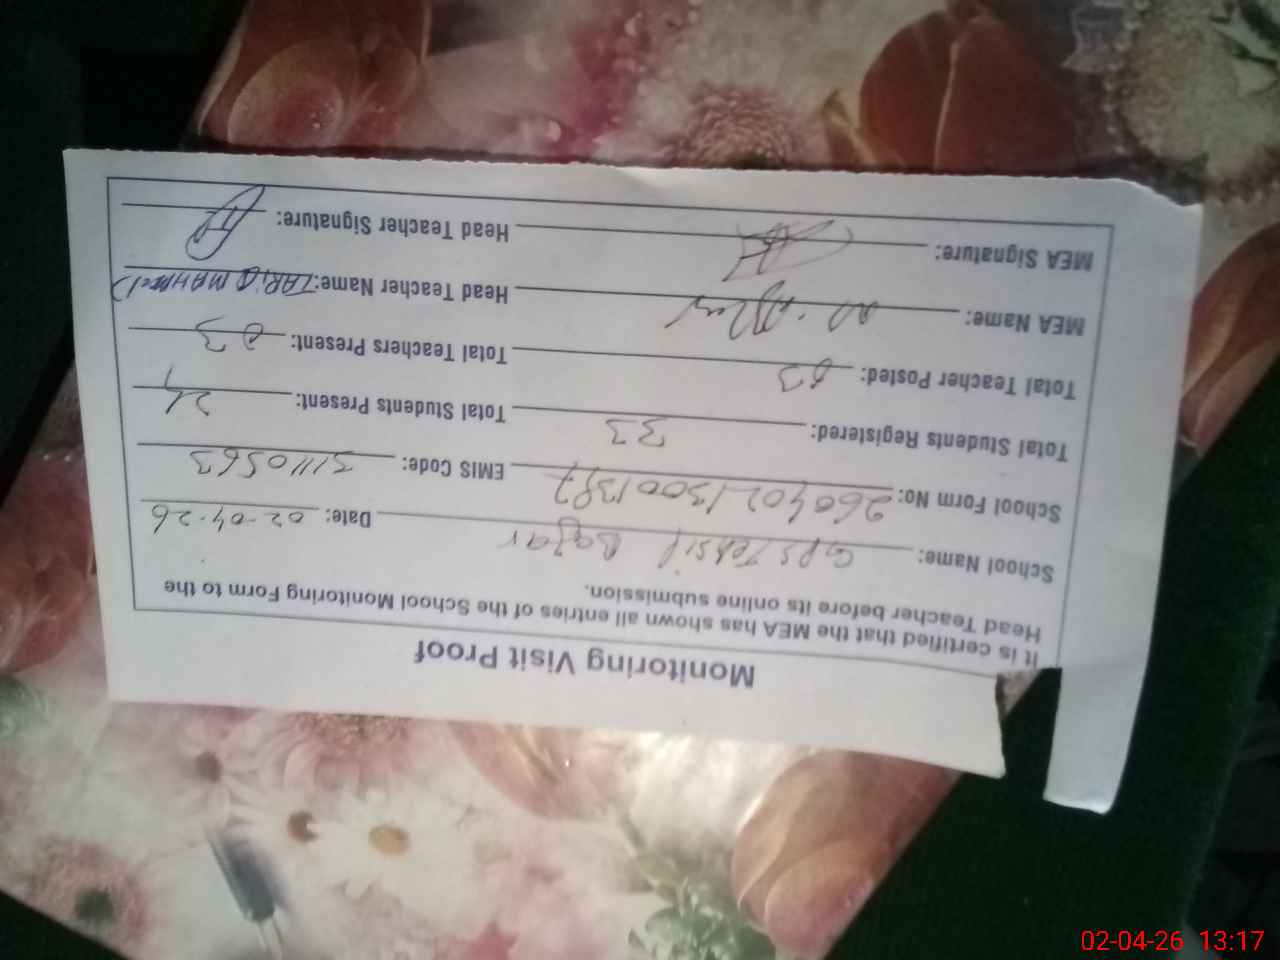 Monitoring Visit Proof
It is certified that the MEA has shown all entries of the School Monitoring Form to the
Head Teacher before its online submission.
School Name: GPS Tehsil Bazar Date: 02-04-26
School Form No: 26040213001397 EMIS Code: 31110563
Total Students Registered: 33 Total Students Present: 24
Total Teacher Posted: 03 Total Teachers Present: 03
MEA Name: Head Teacher Name: TARIQ MAHMOOD
MEA Signature: Head Teacher Signature:
02-04-26 13:17